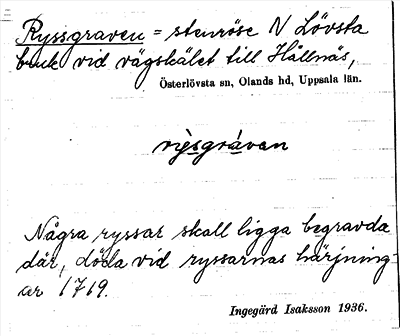 Ryssgraven = stenröse N Lövsta
bruk vid vägskälet till Hållnäs,
Österlövsta sn, Olands hd, Uppsala län.
rỳsgrávan
Några ryssar skall ligga begravda
där, döda vid ryssarnas härjning-
ar 1719.
Ingegärd Isaksson 1936.